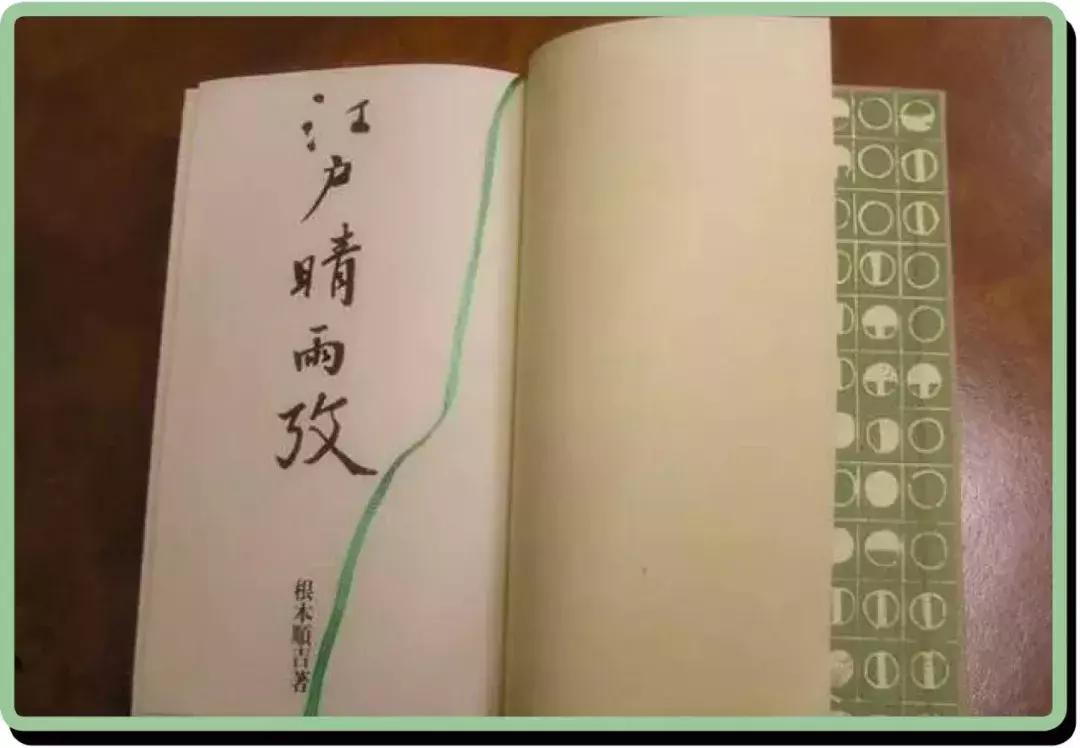 江戸晴雨攷
根本順吉著